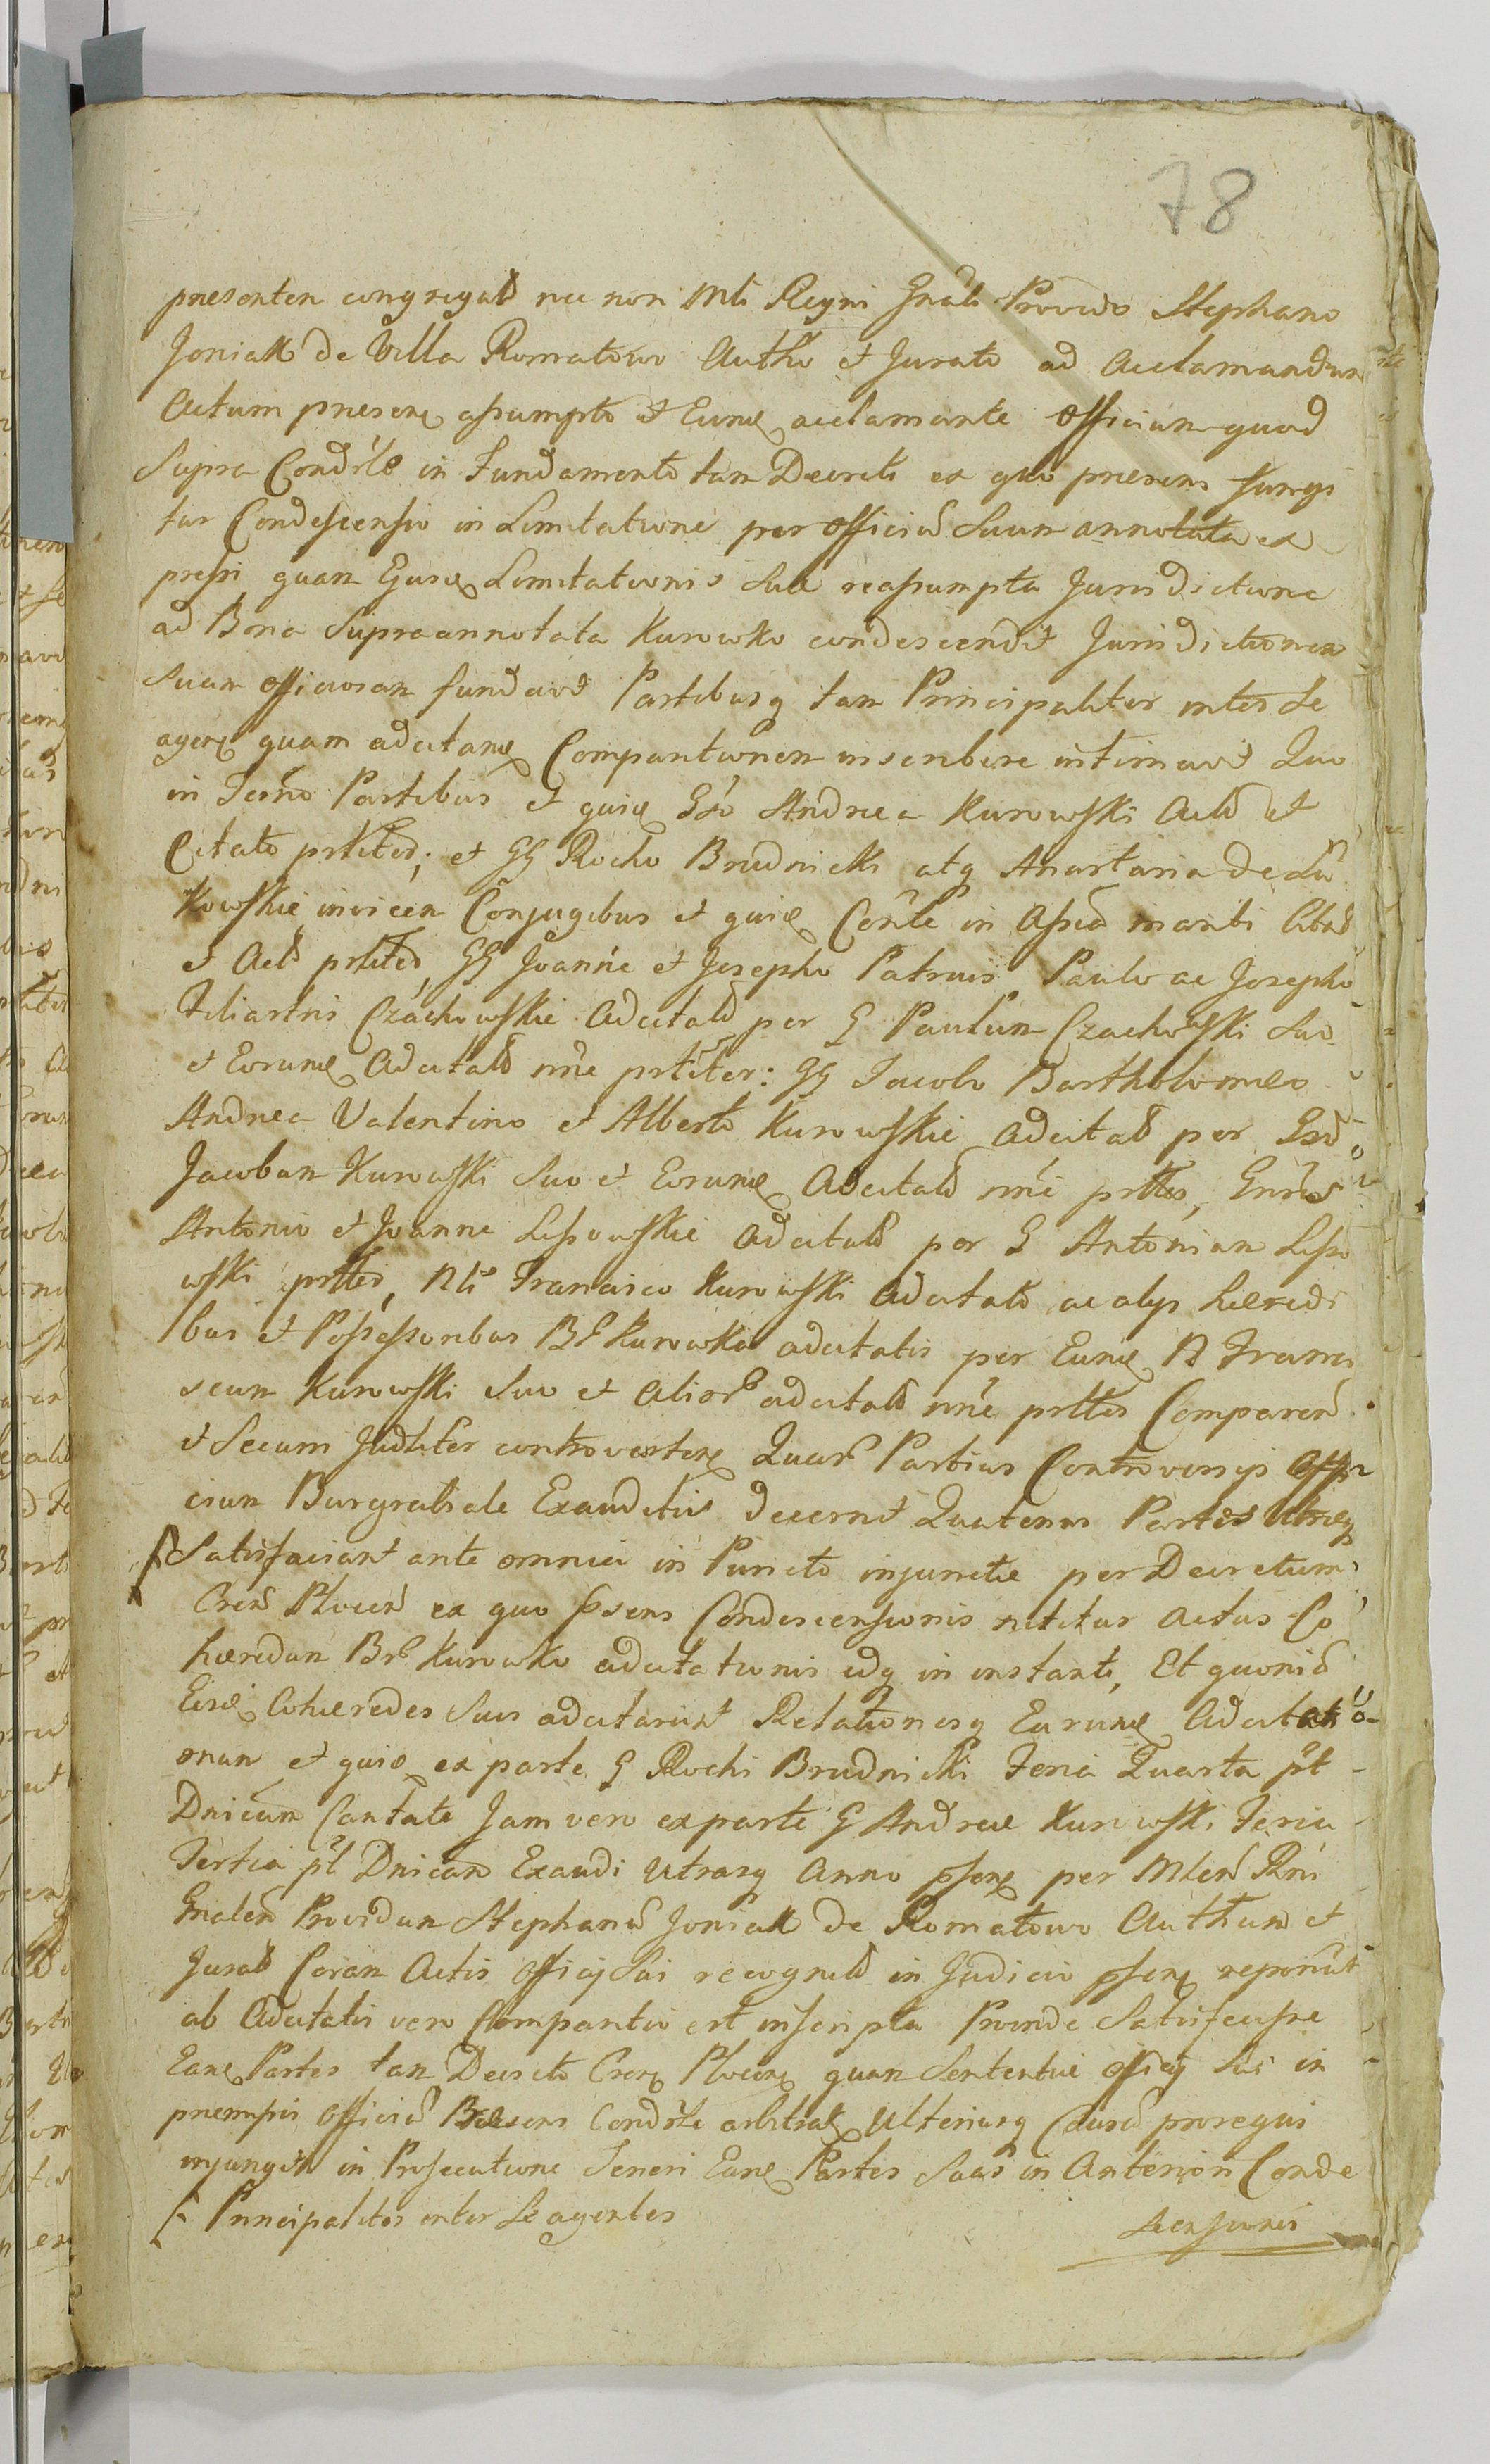 78
presenten congregatd nec non Mti Regni Gnali Provido Stephano
Joniak de Villa Romatowo Autho et Jurato ad acclamandum
Actum praesene assumpto et Eune acclamante Officium quod
Supra Condsle in Fundamento tam Decreti ex quo praesens surgi
tur Condescensio in Limitatione per Officiu Suum annotata ex
pressi quam Ejuse Limitationis Sue reassumpta Jurisdictione
ad Bona Supraannotata Kurowko condescendit Jurisdictionem
Suam officiosam fundavit Partibusq tam Principaliter inter Se
agene quam adcitane Comparitionem inscribere intimavit Quo
in Termo Partibus et quide Gso Andrea Kurowski Actd et
Citato prlited; et GG Rocho Brudnicki atq Anastasia de
kowskie invicem Conjugibus et quide Conle in Assia mariti Citad
et Actd prlited, GG Joanne et Josepho Patruis Paulo ac Josepho
Filiastris Czachowskie Adcitatd per G Paulum Czachowski Suo
et Eorune Adcitatd nne prliter: GG Jacobo Bartholomeo
Andrea Valentino et Alberto Kurowskie adcitatd per Gsd
Jacobum Kurowski Suo et Eorune Adcitatd nne prltes, Gnrsd
Antonio et Joanne Lissowskie Adcitatd per G Antonium Lisso
wski prlted, Nli Francisco Kurowski Adcitatd ac alys haeredi
bus et Possessoribus B Kurowko adcitatis per Eune N Franci
scum Kurowski Suo et alior adcitatd nne prltes Comparend
et Secum Judliter controvertene Quar Partium Controversys Offi
cium Burgrabiale Exauditis decernit Quatenus Partes Utraeq
Satisfaciant ante omnia in Puncto injunctae per Decretum
Crens Plocen ex quo psens Condescensionis nititur actus Co
haeredum Br Kurowko adcitationis idq in instanti, Et quoniam
Eaedem Cohaeredes Suos adcitarunt Relationesq Earune Adcitati
onum et quide ex parte G Rochi Brudnicki Feria Quarta pt
Dnicam Cantate Jam vero ex parte G Andreae Kurowski Feria
Tertia pt Dnicam Exaudi Utrasq Anno psene per Mlem Rni
Gnalem Providum Stephanu Joniak de Romatowo Authum et
Jurad Coram Actis Officj Sui recognitd in Judicio psene reponunt
ab Adcitatis vero Comparitio est inscripta Proinde Satisfecisse
Eane Partes tam Decreto Crene Plocene quam Sententiae Officj Sui in
praemissis Officiu Praesens Condsle arbitrat Ulteriusq Causa prosequi
injungit in Prosecutione Teneri Eane Partes Suas in Anteriori Conde
Principaliter inter Se agentes
scensionis